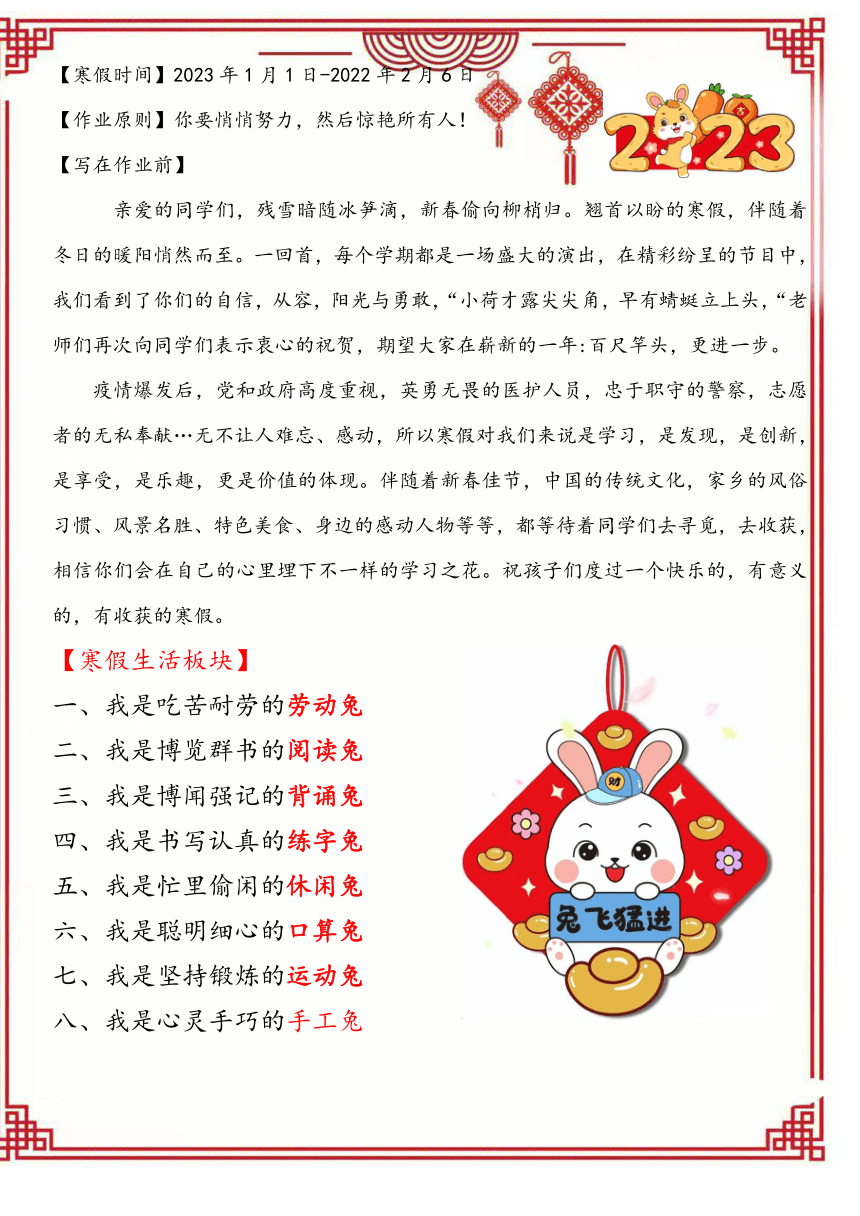 【寒假时间】2023年1月1日-2022年2月6日
【作业原则】你要悄悄努力，然后惊艳所有人！
【写在作业前】
吉
2023
亲爱的同学们，残雪暗随冰笋滴，新春偷向柳梢归。翘首以盼的寒假，伴随着
冬日的暖阳悄然而至。一回首，每个学期都是一场盛大的演出，在精彩纷呈的节目中，
我们看到了你们的自信，从容，阳光与勇敢，“小荷才露尖尖角，早有蜻蜓立上头，“老
师们再次向同学们表示衷心的祝贺，期望大家在崭新的一年:百尺竿头，更进一步。
疫情爆发后，党和政府高度重视，英勇无畏的医护人员，忠于职守的警察，志愿
者的无私奉献…无不让人难忘、感动，所以寒假对我们来说是学习，是发现，是创新，
是享受，是乐趣，更是价值的体现。伴随着新春佳节，中国的传统文化，家乡的风俗
习惯、风景名胜、特色美食、身边的感动人物等等，都等待着同学们去寻觅，去收获，
相信你们会在自己的心里埋下不一样的学习之花。祝孩子们度过一个快乐的，有意义
的，有收获的寒假。
【寒假生活板块】
一、我是吃苦耐劳的劳动兔
二、我是博览群书的阅读兔
三、我是博闻强记的背诵兔
四、我是书写认真的练字兔
五、我是忙里偷闲的休闲兔
六、我是聪明细心的口算兔
七、我是坚持锻炼的运动兔
八、我是心灵手巧的手工兔
财
兔飞猛进